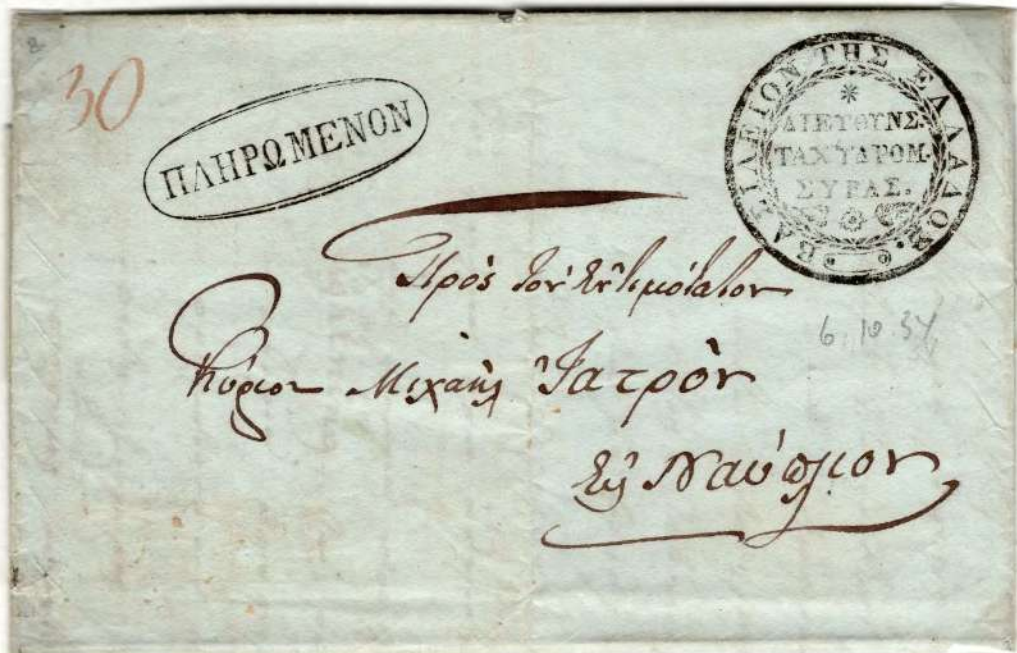 30
ΠΛΗΡΩΜΕΝΟΝ
ΒΑΣΙΛΕΙΟΝ ΤΗΣ ΕΛΛΑΔΟΣ.
ΔΙΕΥΘΥΝΣ.
ΤΑΧΥΔΡΟΜ.
ΣΥΡΑΣ.
Πρὸς τὸν Ἐντιμότατον
Κύριον Μιχαὴλ Ἰατρὸν
Εἰς Ναύπλιον
6.10.34